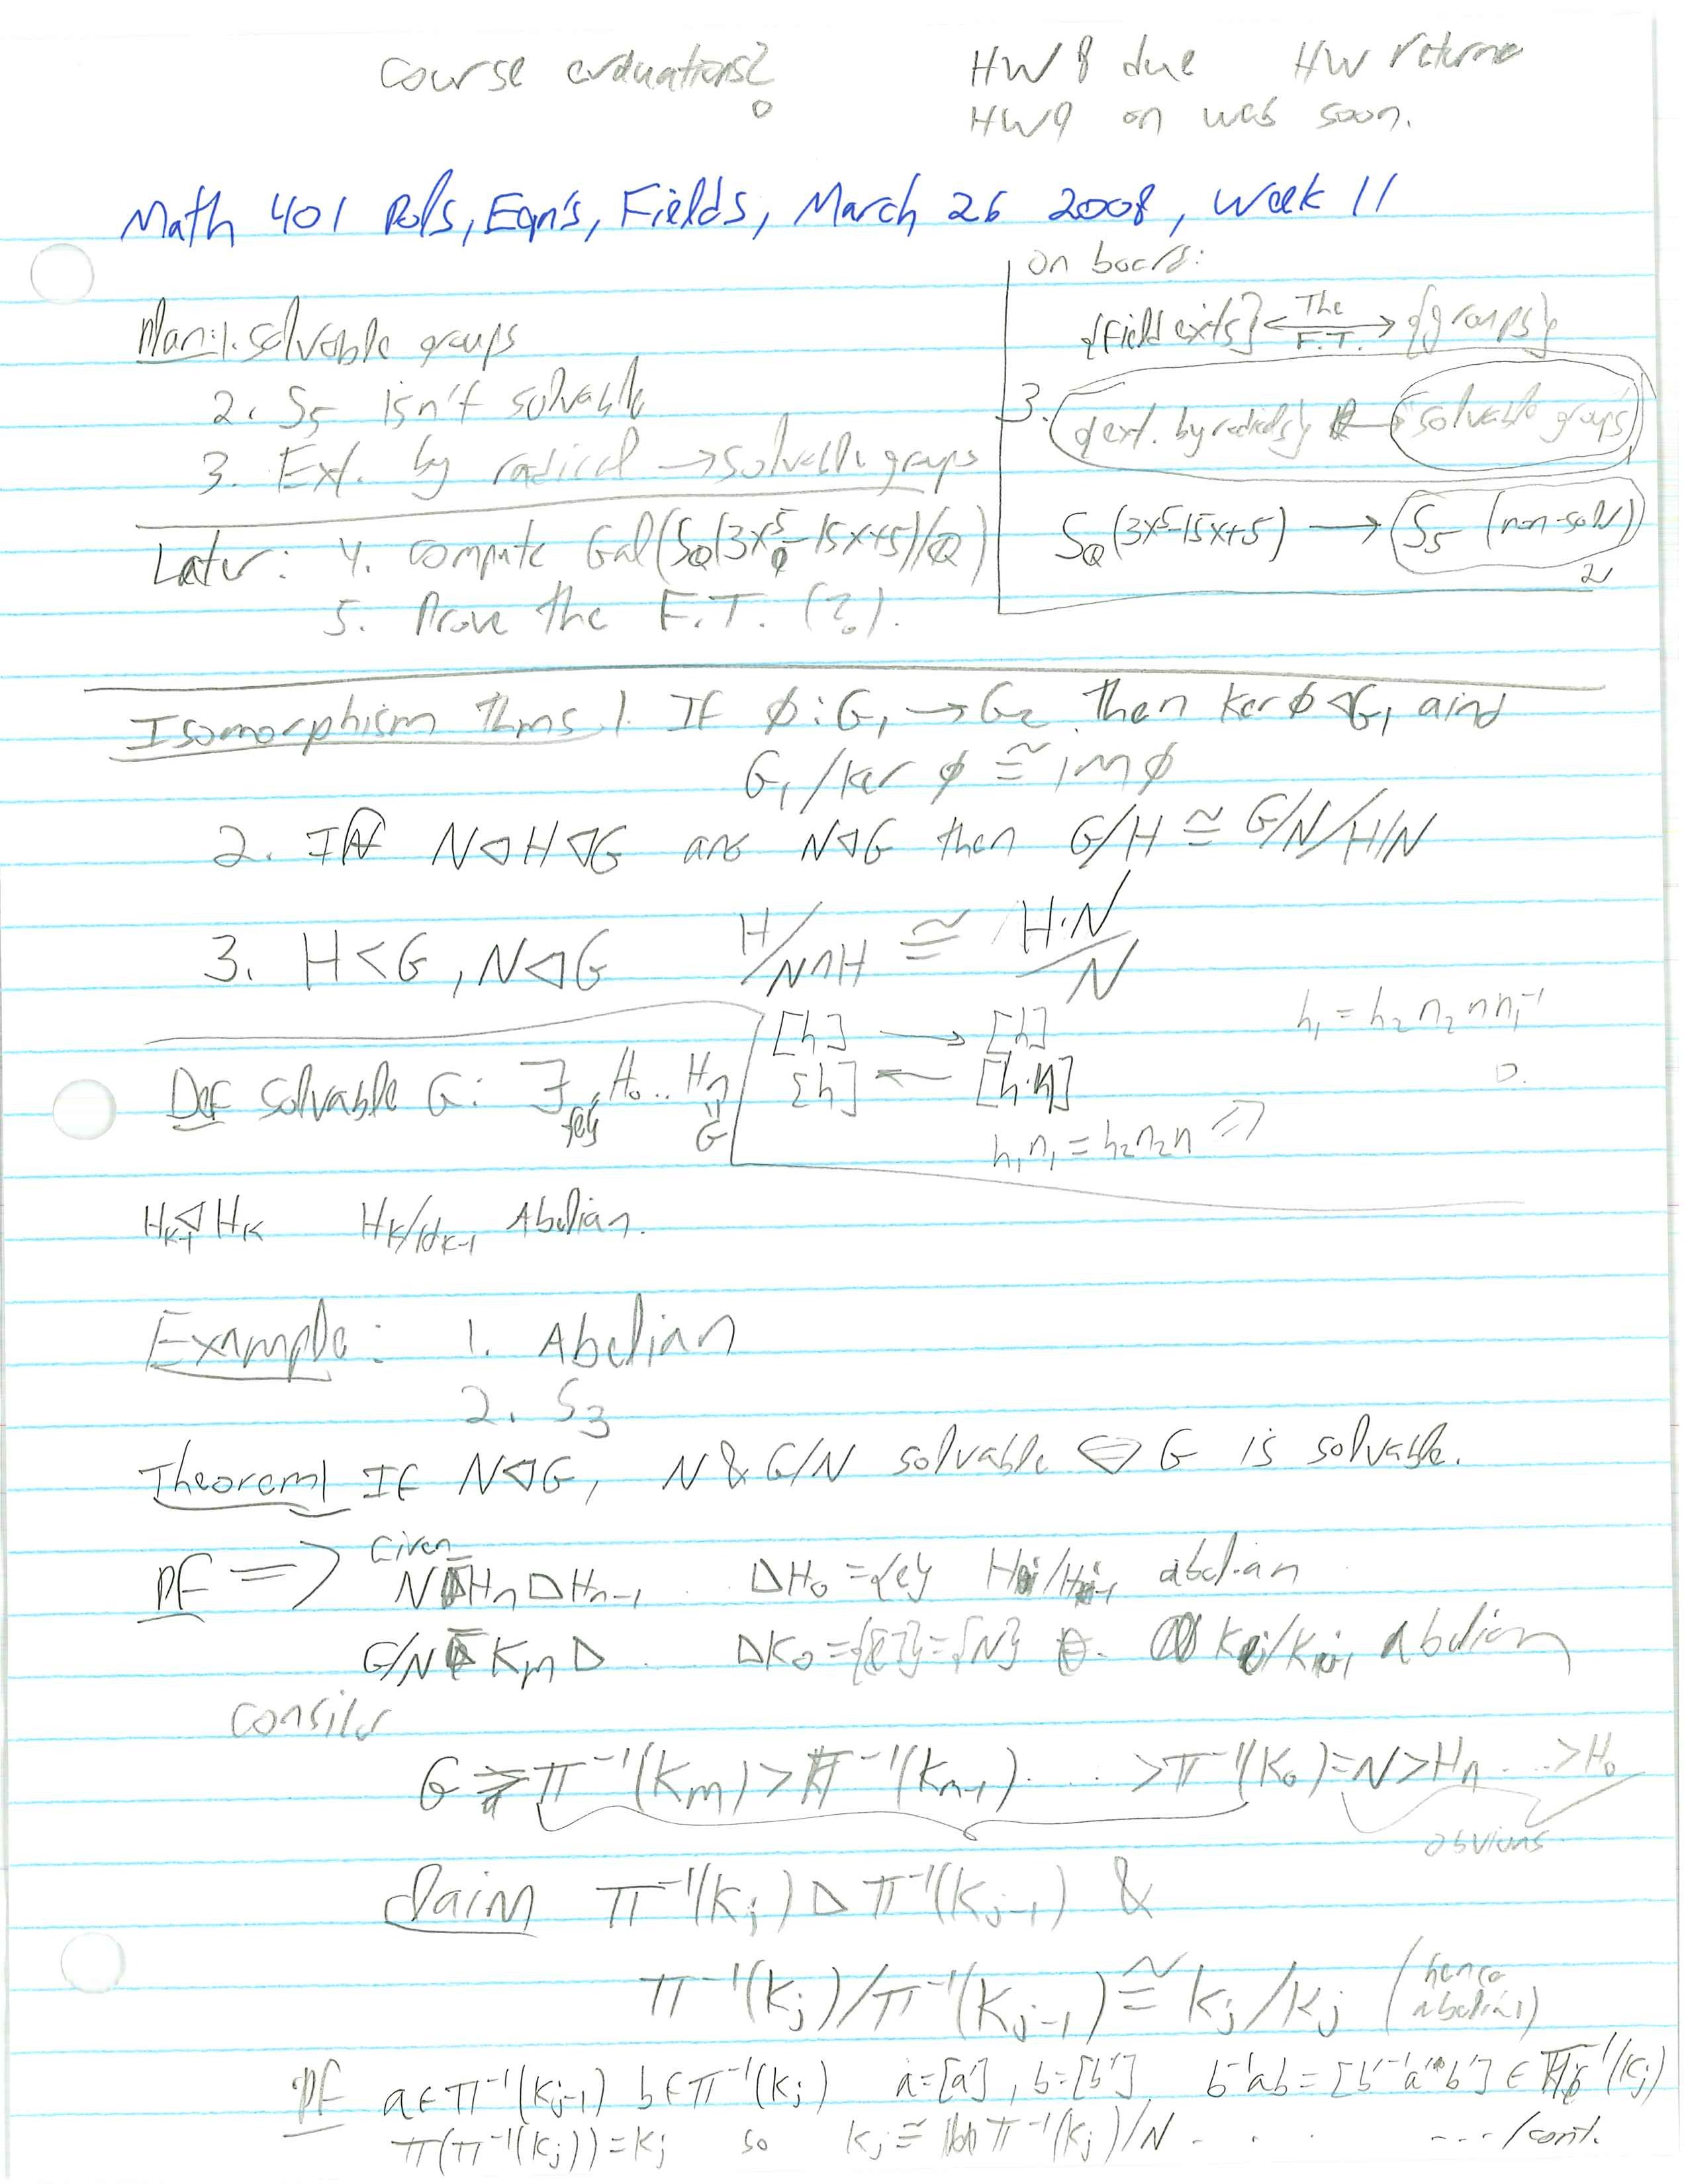 course evaluations?
HW 8 due HW returne
HW9 on web soon.
Math 401 Pols, Eqn's, Fields, March 26 2008, Week 11
Plan: 1. solvable groups
2. S₅ isn't solvable
3. Ext. by radical → solvable groups
Later: 4. compute Gal(S_Q(3x⁵-15x+5)/Q)
5. Prove the F.T. (?).
On board:
{field exts} <—The F.T.—> {groups}
3. {ext. by radicals} → {solvable groups}
S_Q(3x⁵-15x+5) → S₅ (non-solv)
2
Isomorphism thms 1. If ϕ: G₁ → G₂ then ker ϕ ◁ G₁ and
G₁/ker ϕ ≅ im ϕ
2. If N ◁ H ◁ G and N ◁ G then G/H ≅ G/N/H/N
3. H < G, N ◁ G H/N∩H ≅ H·N/N
[h] → [h]
[h] ← [h·n]
h₁n₁ = h₂n₂n ⇒
h₁ = h₂n₂nn₁⁻¹
Def solvable G: ∃ {e}=H₀...Hₙ=G
H_{k-1} ◁ H_k H_k/H_{k-1} Abelian.
Example: 1. Abelian
2. S₃
Theorem 1 If N ◁ G, N & G/N solvable ⇔ G is solvable.
PF ⇒ Given
N = Hₙ ▷ Hₙ₋₁ ... ▷ H₀ = {e} H_j/H_{j-1} abelian
G/N = K_m ▷ ... ▷ K₀ = {[e]} = {N} K_j/K_{j-1} abelian
consider
G = π⁻¹(K_m) > π⁻¹(K_{m-1}) ... > π⁻¹(K₀) = N > Hₙ ... > H₀
obvious
Claim π⁻¹(K_j) ▷ π⁻¹(K_{j-1}) &
π⁻¹(K_j)/π⁻¹(K_{j-1}) ≅ K_j/K_j (hence abelian)
PF a∈π⁻¹(K_{j-1}) b∈π⁻¹(K_j) a=[a'], b=[b'] b⁻¹ab = [b'⁻¹a'b'] ∈ π⁻¹(K_j)
π(π⁻¹(K_j)) = K_j so K_j ≅ π⁻¹(K_j)/N . . . . .../cont.